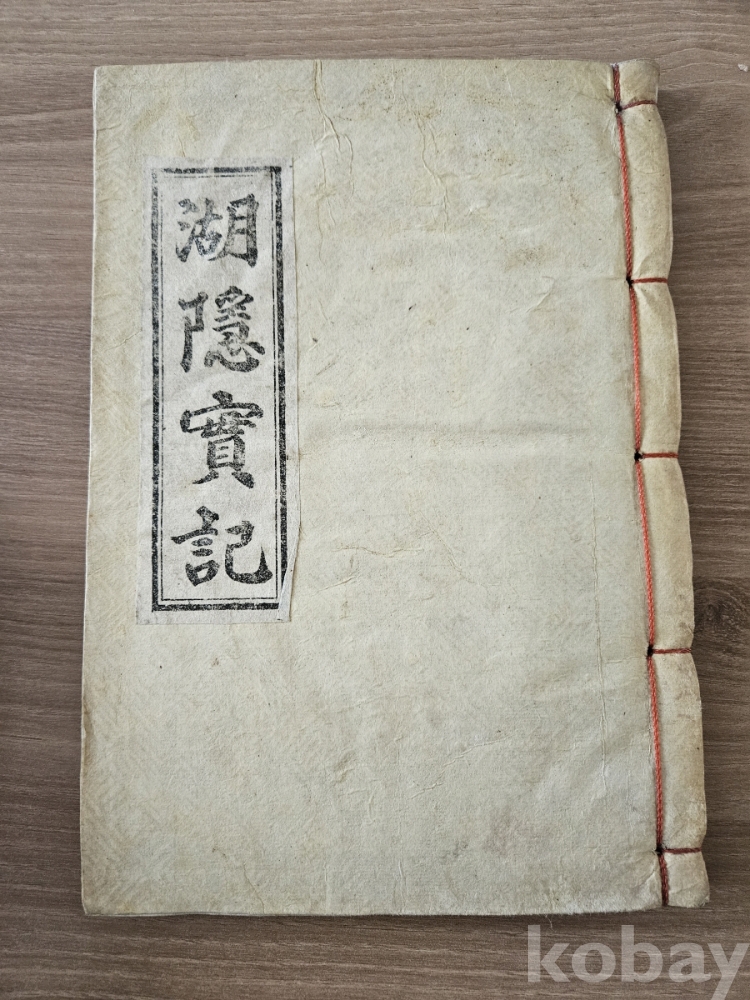 湖隱實記
kobay